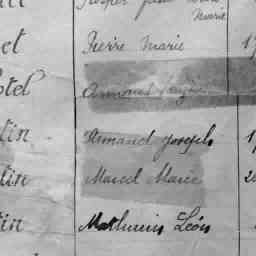 Marie
et Pierre Marie 17
tel Armand
tin Armand Joseph 1
tin Marcel Marie 2
tin Mathurin Léon